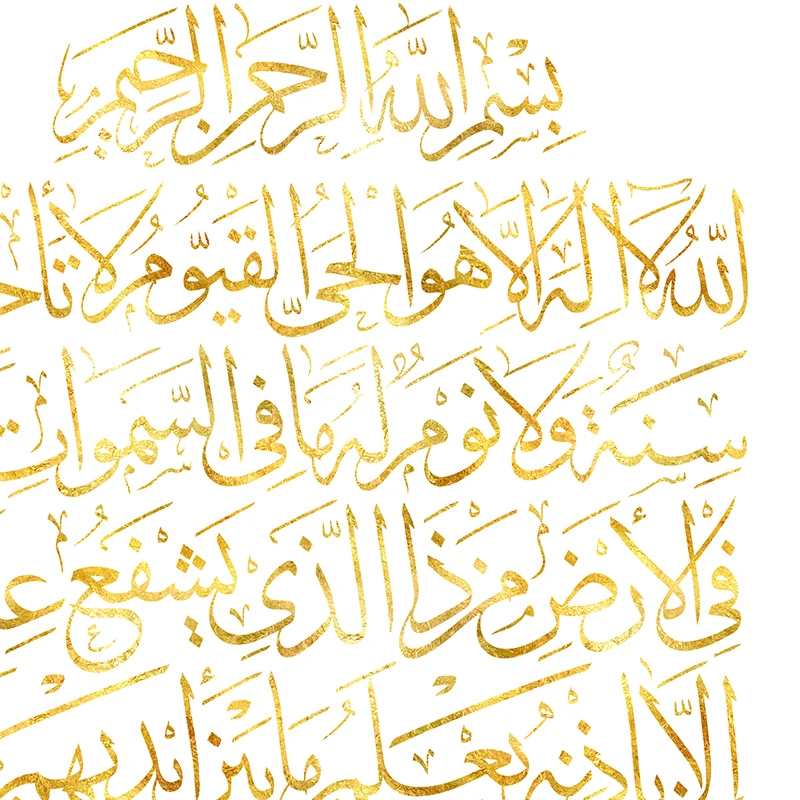 بِسْمِ اللَّهِ الرَّحْمَنِ الرَّحِيمِ
اللَّهُ لَا إِلَهَ إِلَّا هُوَ الْحَيُّ الْقَيُّومُ لَا تَأْخ
سِنَةٌ وَلَا نَوْمٌ لَهُ مَا فِي السَّمَوَاتِ
فِي الْأَرْضِ مَنْ ذَا الَّذِي يَشْفَعُ عِ
إِلَّا بِإِذْنِهِ يَعْلَمُ مَا بَيْنَ أَيْدِيهِمْ